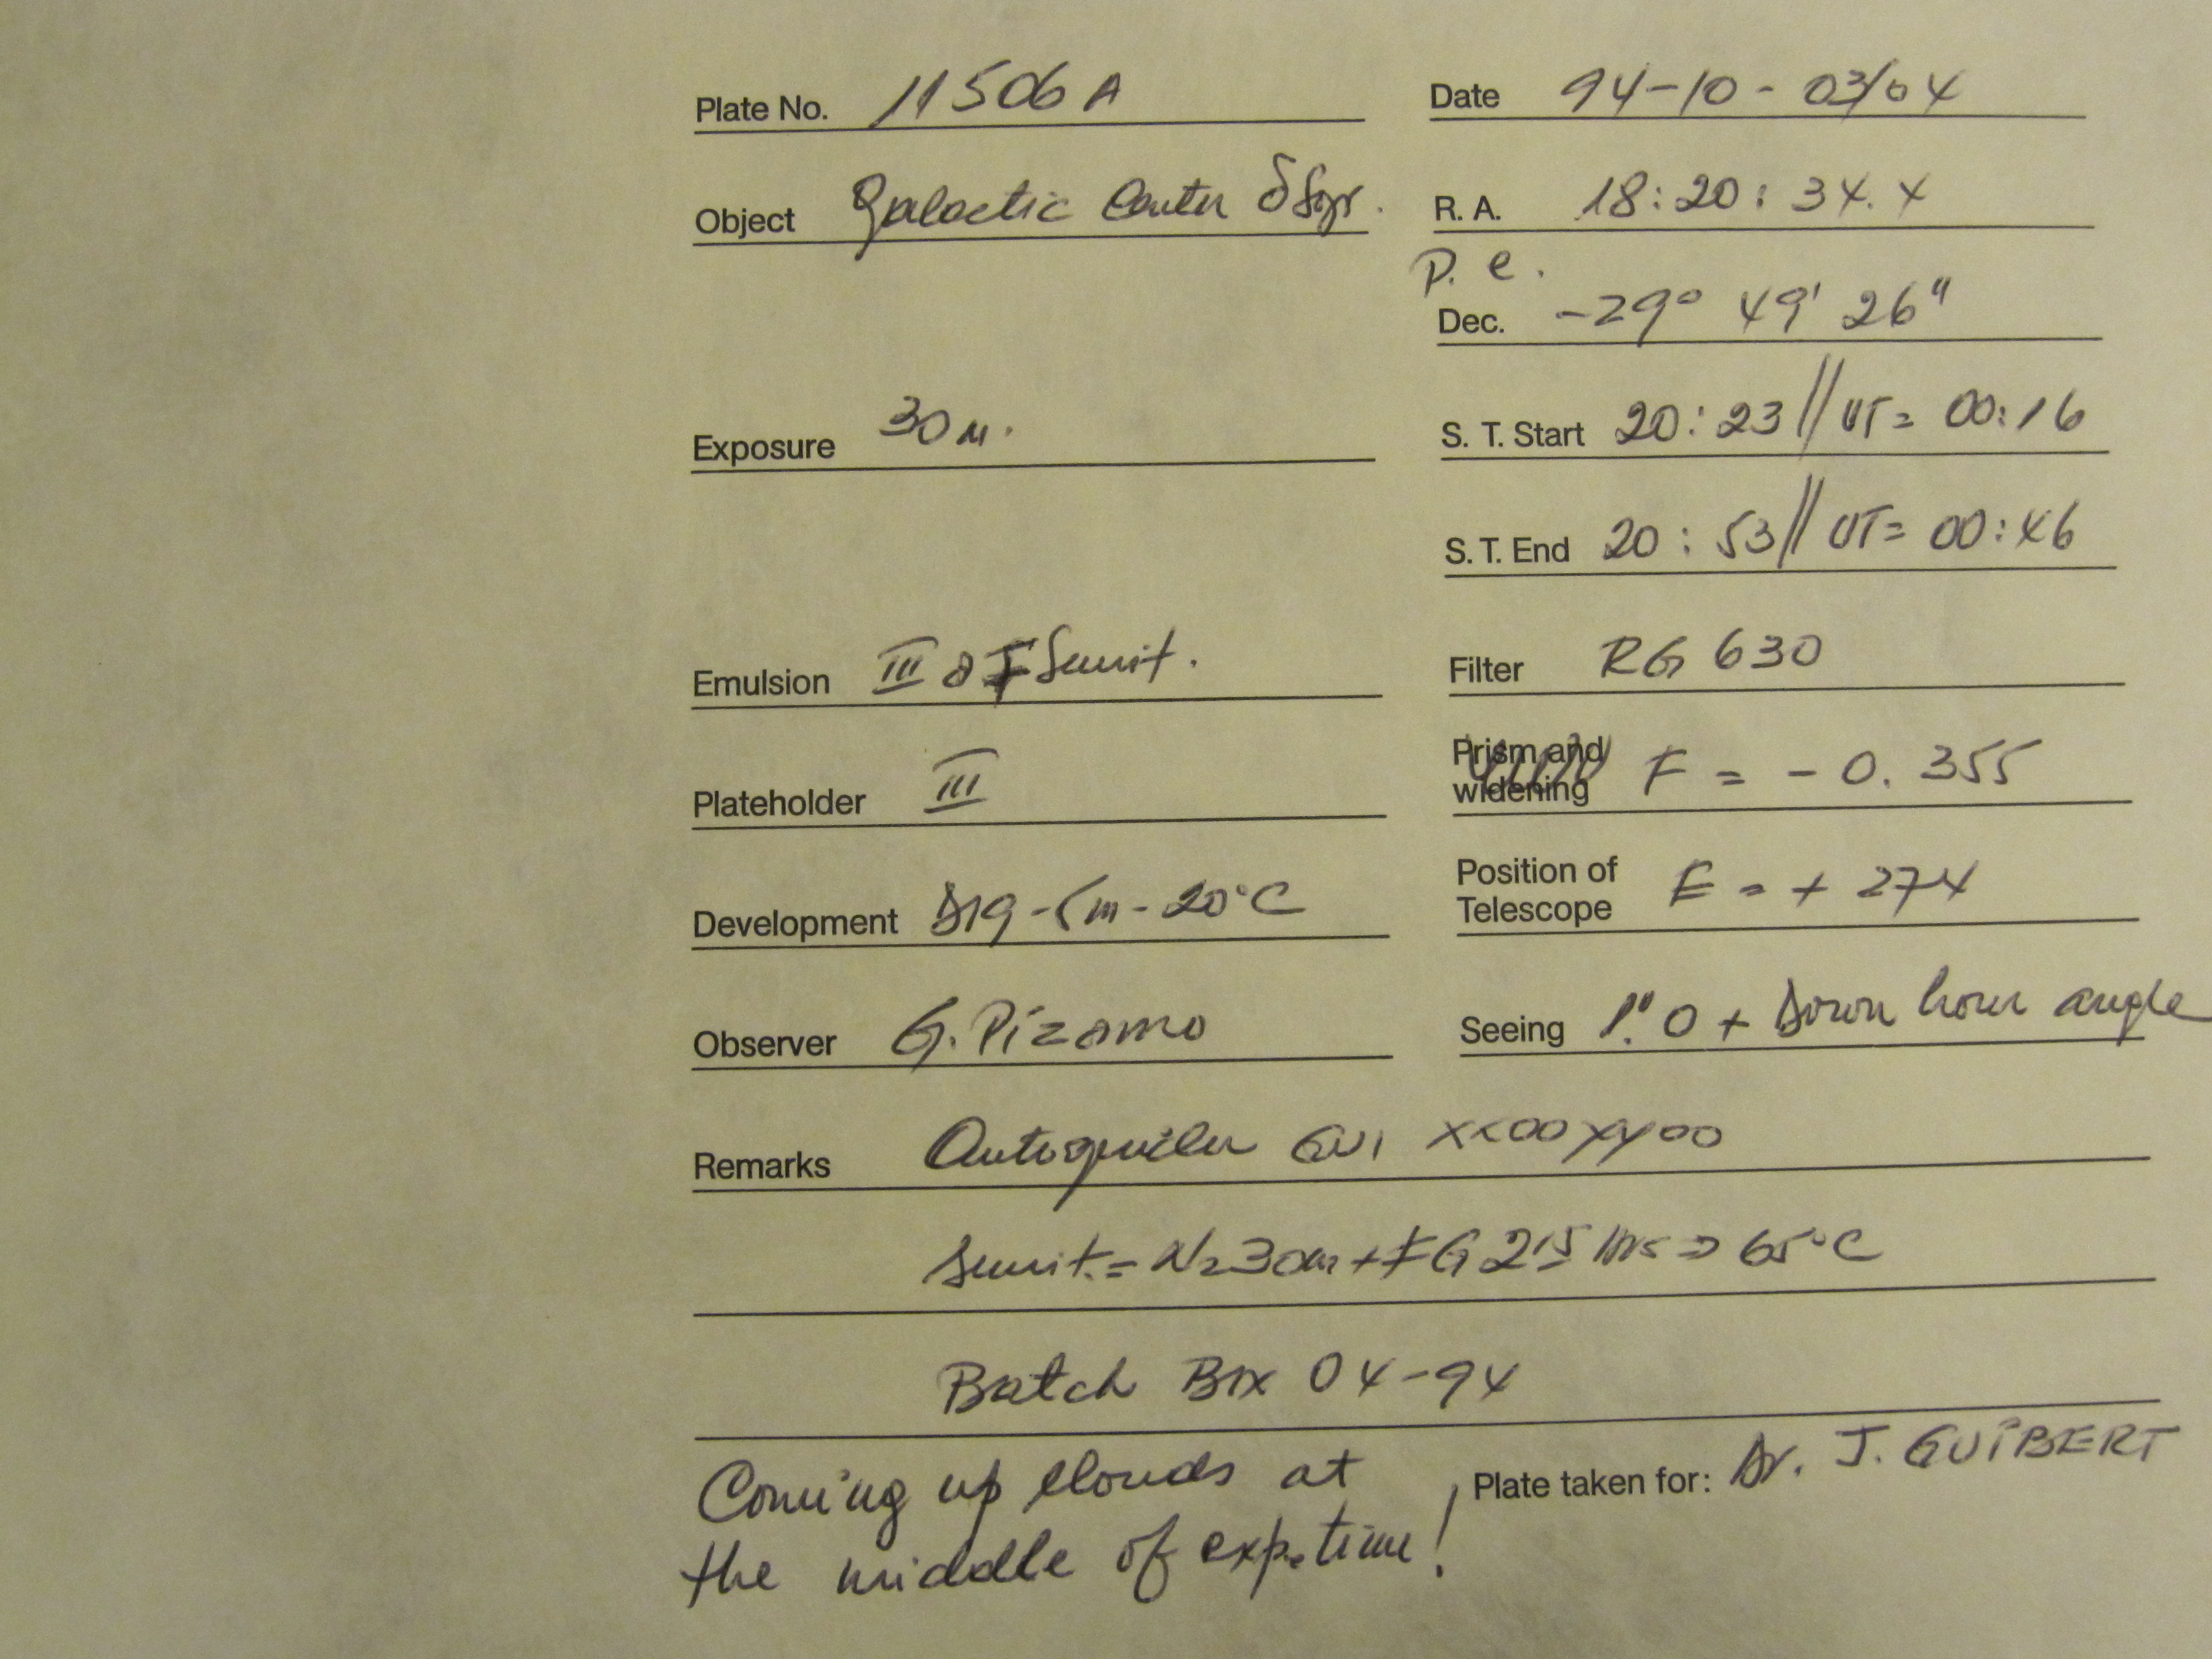 Plate No. 11506 A
Date 94-10-03/04
Object Galactic Center δ Sgr.
R. A. 18:20:34.4
P. e.
Dec. -29° 49' 26"
Exposure 30 m.
S. T. Start 20:23 // UT= 00:16
S. T. End 20:53 // UT= 00:46
Emulsion III a F Sensit.
Filter RG 630
Plateholder III
Prism and widening F = -0.355
Development D19-5m-20°C
Position of Telescope E = + 274
Observer G. Pizarro
Seeing 1".0 + Down hour angle
Remarks Autoguider GU1 XX00 YY00
Sensit.= N2 30m + FG 215 => 65°C
Batch Box 04-94
Plate taken for: Dr. J. GUIBERT
Coming up clouds at
the middle of exp. time!